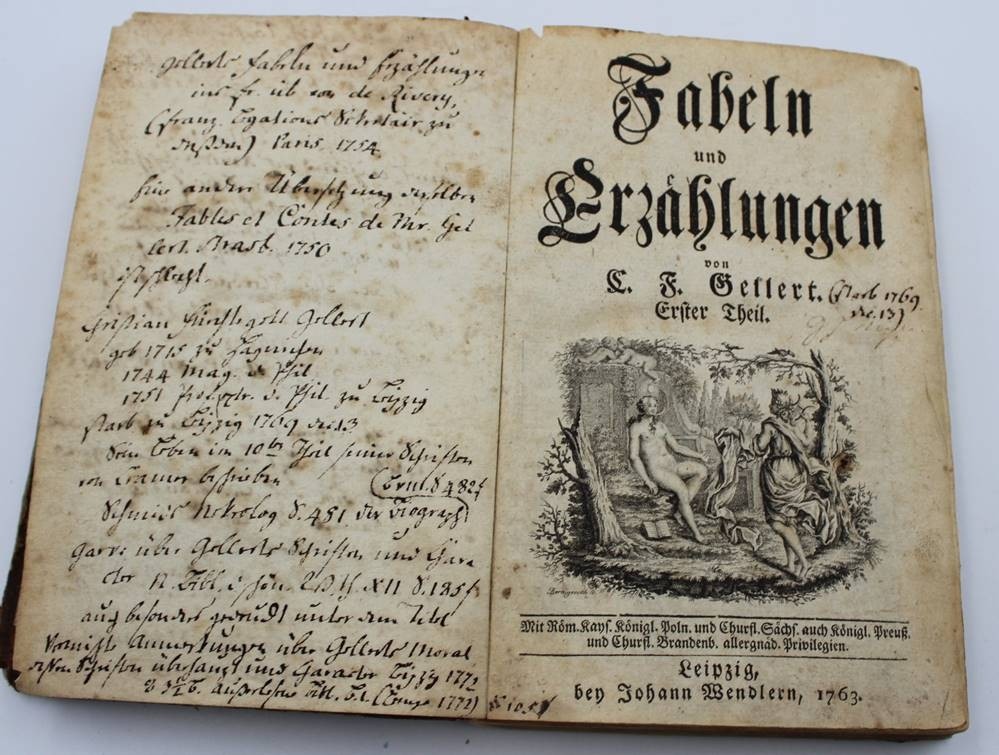 Gellerts Fabeln und Erzählungen
ins fr. üb. von de Rivery,
(franz. Legations Sekretair zu
) Paris 1754
Eine andere Übersetzung derselben
Fables et Contes de Mr. Gel
lert. Strasb. 1750
ist schlecht.
Christian Fürchtegott Gellert
geb 1715 zu Haynichen
1744 Mag. d. Phil
1751 Prof. d. Phil. zu Leipzig
starb zu Leipzig 1769 13
Sein Leben im 10ten Theil seiner Schriften
von Cramer beschrieben
S 482f
Schmids Nekrolog S. 481 der Biograph
Garve über Gellerts Schriften und Chara
cter N. Bibl. d. schön. XII S. 185f
auch besonders gedruckt unter dem Titel
Vermischte Anmerkungen über Gellerts Moral
dessen Schriften überhaupt und Caracter Leipzig 1772
1772)
Fabeln
und
Erzählungen
von
C. F. Gellert.
(starb 1769
13)
Erster Theil.
Mit Röm. Kays. Königl. Poln. und Churfl. Sächs. auch Königl. Preuß.
und Churfl. Brandenb. allergnäd. Privilegien.
Leipzig,
bey Johann Wendlern, 1763.